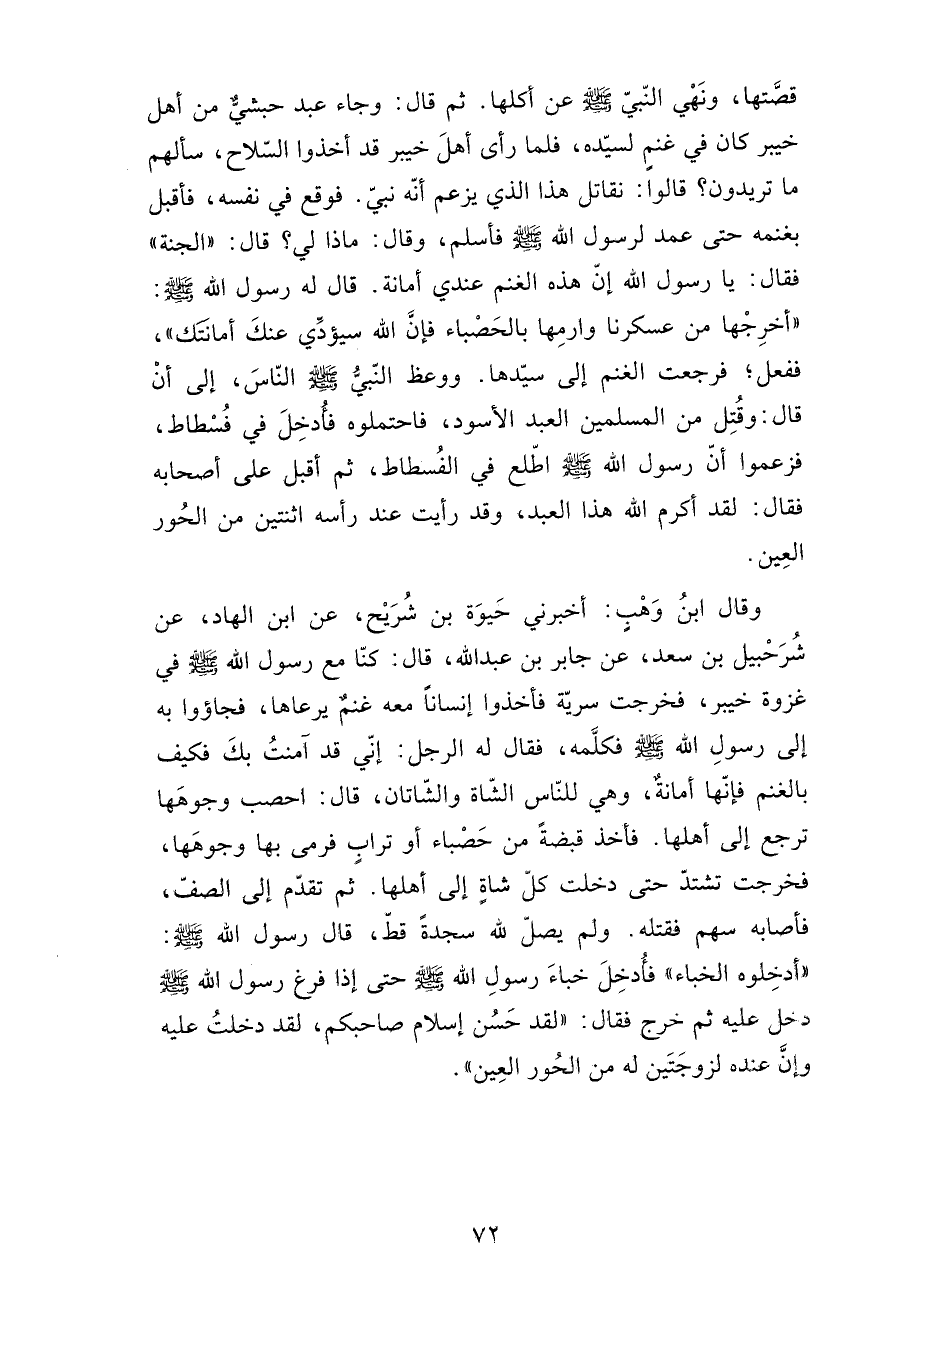 قصَّتها، ونَهْي النّبيّ ﷺ عن أكلها. ثم قال: وجاء عبد حبشيٌّ من أهل
خيبر كان في غنمٍ لسيّده، فلما رأى أهلَ خيبر قد أخذوا السّلاح، سألهم
ما تريدون؟ قالوا: نقاتل هذا الذي يزعم أنّه نبيّ. فوقع في نفسه، فأقبل
بغنمه حتى عمد لرسول الله ﷺ فأسلم، وقال: ماذا لي؟ قال: «الجنة»
فقال: يا رسول الله إنّ هذه الغنم عندي أمانة. قال له رسول الله ﷺ:
«أخرِجْها من عسكرنا وارمِها بالحَصْباء فإنَّ الله سيؤدِّي عنكَ أمانَتَك»،
ففعل؛ فرجعت الغنم إلى سيّدها. ووعظ النّبيُّ ﷺ النّاسَ، إلى أنْ
قال: وقُتِل من المسلمين العبد الأسود، فاحتملوه فأُدخِلَ في فُسْطاط،
فزعموا أنّ رسول الله ﷺ اطّلع في الفُسطاط، ثم أقبل على أصحابه
فقال: لقد أكرم الله هذا العبد، وقد رأيت عند رأسه اثنتين من الحُور
العِين.
وقال ابنُ وَهْبٍ: أخبرني حَيوَة بن شُرَيْح، عن ابن الهاد، عن
شُرَحْبيل بن سعد، عن جابر بن عبدالله، قال: كنّا مع رسول الله ﷺ في
غزوة خيبر، فخرجت سريّة فأخذوا إنساناً معه غنمٌ يرعاها، فجاؤوا به
إلى رسولِ الله ﷺ فكلَّمه، فقال له الرجل: إنّي قد آمنتُ بكَ فكيف
بالغنم فإنّها أمانةٌ، وهي للنّاس الشّاة والشّاتان، قال: احصب وجوهَها
ترجع إلى أهلها. فأخذ قبضةً من حَصْباء أو ترابٍ فرمى بها وجوهَها،
فخرجت تشتدّ حتى دخلت كلّ شاةٍ إلى أهلها. ثم تقدّم إلى الصفّ،
فأصابه سهم فقتله. ولم يصلّ لله سجدةً قطّ، قال رسول الله ﷺ:
«أدخِلوه الخباء» فأُدخِلَ خباءَ رسولِ الله ﷺ حتى إذا فرغ رسول الله ﷺ
دخل عليه ثم خرج فقال: «لقد حَسُن إسلام صاحبكم، لقد دخلتُ عليه
وإنَّ عنده لزوجَتَين له من الحُور العِين».
٧٢